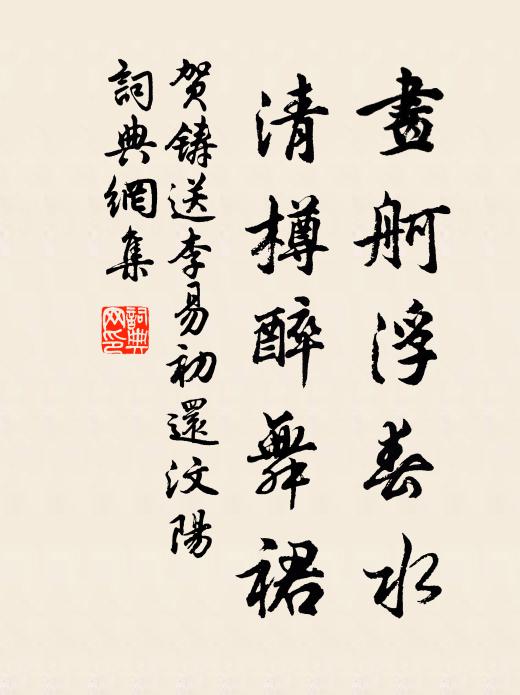 畫舸浮春水
清樽醉舞裙
賀鑄送李易初還汶陽
詞典網集
詞典网印